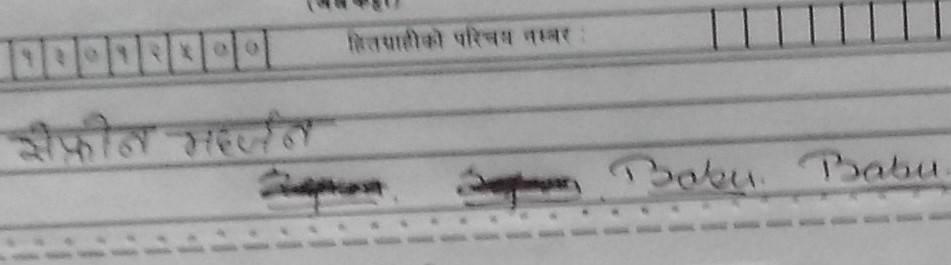 १२०१२५००  हितग्राहीको परिचय नम्बर :
सेफ्रीन महर्जन
Babu. Babu